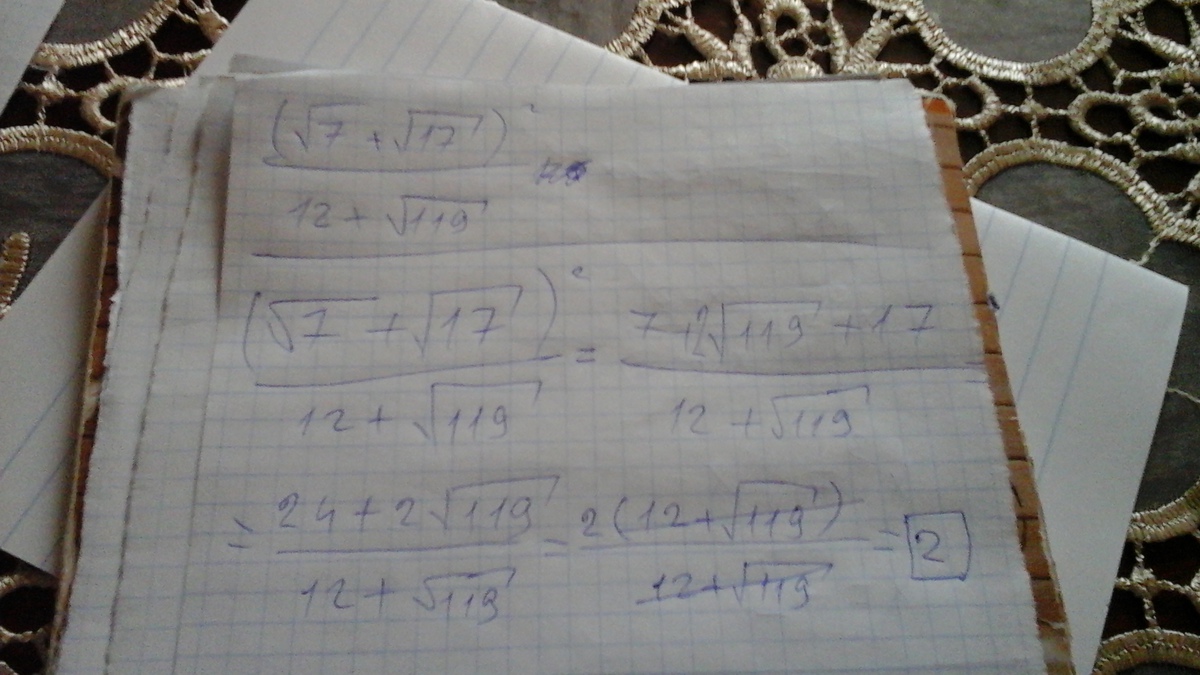 (√7 + √17)²
12 + √119
(√7 + √17)² / 12 + √119 = 7 + 2√119 + 17 / 12 + √119
= 24 + 2√119 / 12 + √119 = 2(12 + √119) / 12 + √119 = 2